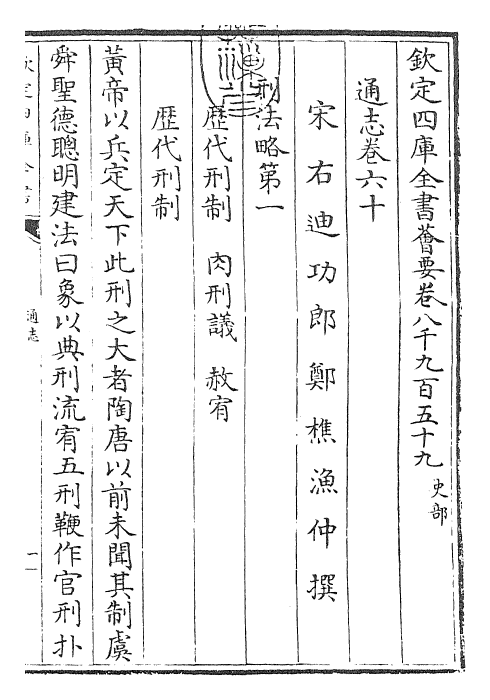 欽定四庫全書薈要卷八千九百五十九 史部
通志卷六十
宋右迪功郎鄭樵漁仲撰
刑法略第一
歴代刑制 肉刑議 赦宥
歴代刑制
黃帝以兵定天下此刑之大者陶唐以前未聞其制虞
舜聖德聰明建法曰象以典刑流宥五刑鞭作官刑扑
欽定四庫全書
通志
一